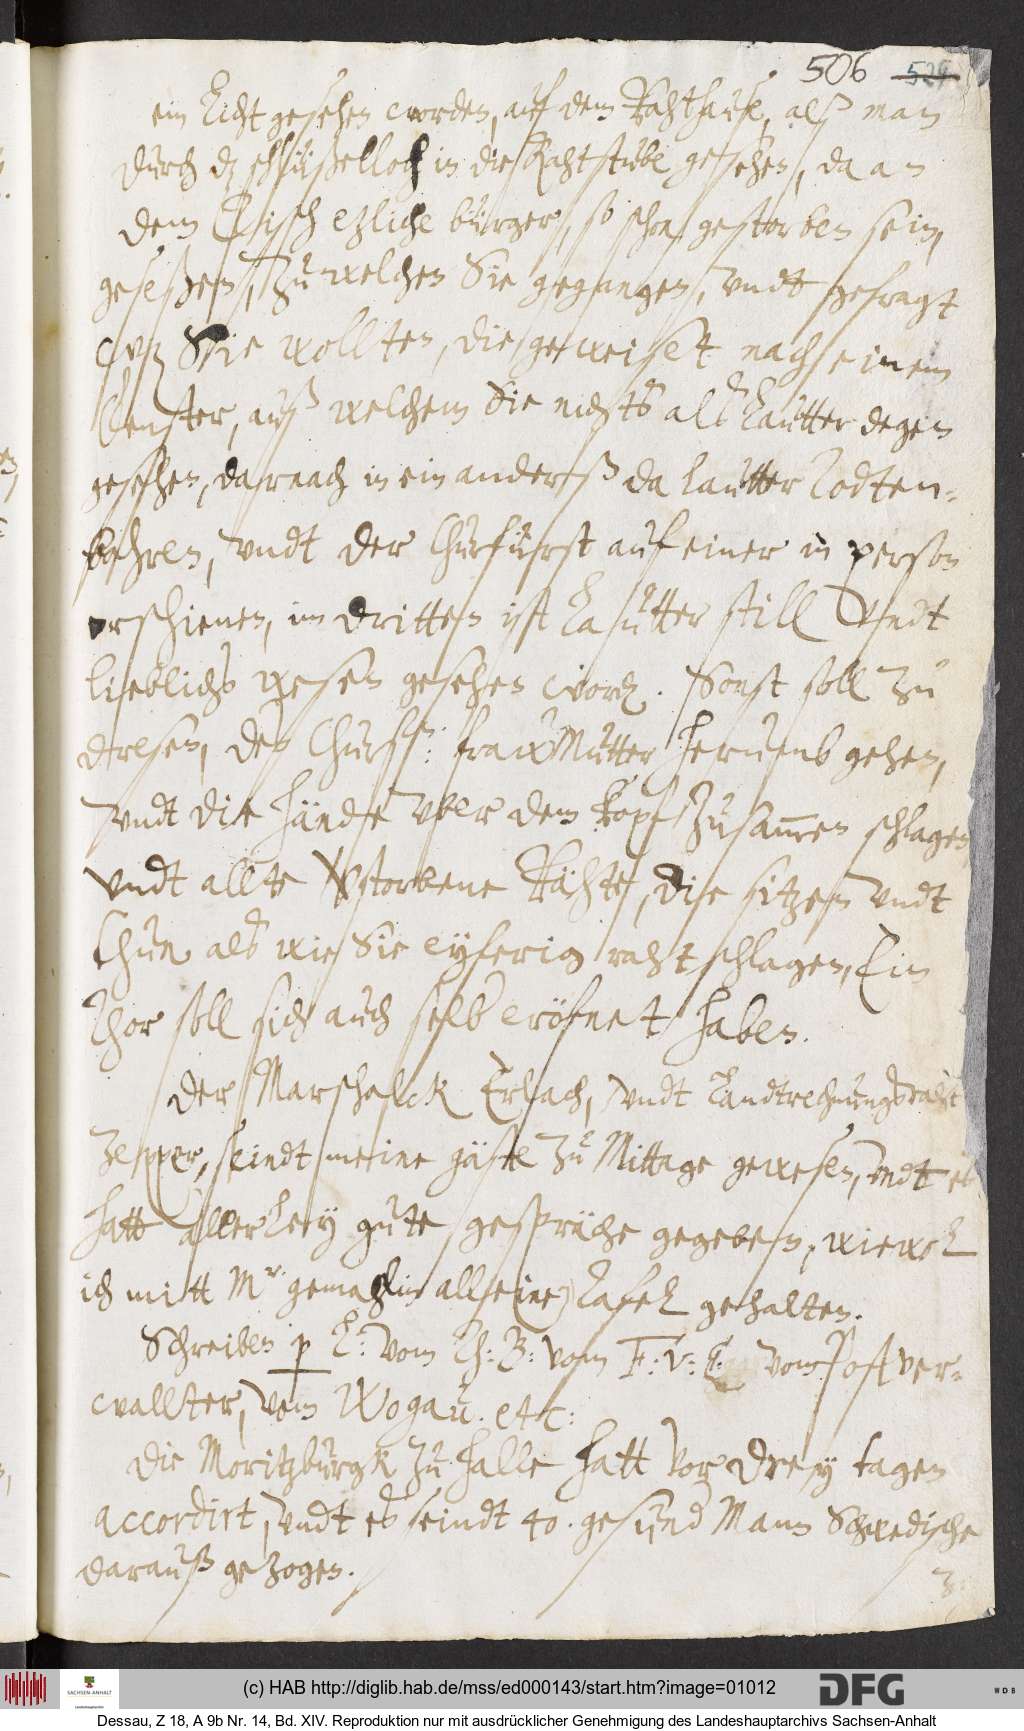 506 524
ein licht gesehen worden, auf dem Rahthause, alß man
durch dz schlüßelloch in die Rahtstube gesehen, da an
dem Tisch etzliche bürger, so schon gestorben sein,
geseßen, zu welchen Sie gegangen, undt gefragt
waz Sie wollten, die geweiset nach einem
fenster, auß welchem Sie nichts alß lautter degen
gesehen, darnach in ein anderß da lautter todten-
bahren, undt der Churfürst auf einer in person
erschienen, im dritten ist lautter still undt
lieblichs wesen gesehen word. Sonst soll zu
dresen, des Churfs: fraw Mutter herumb gehen,
undt die hände uber dem kopf zusammen schlagen,
undt allte verstorbene Rähte, die sitzen undt
thun als wie Sie eyferig rahtschlagen, Ein
Thor soll sich auch selb eröfnet haben.
Der Marschalck Erlach, undt Landtrechnungsraht
Zepper, seindt meine gäste zu Mittage gewesen, undt es
hatt allerley gute gespräche gegeben, wiewol
ich mitt Mr. gemahlin alleine Tafel gehalten.
Schreiben p L: vom Th: B: vom F: v: vom Postver-
wallter, vom Wogau. etc:
Die Moritzburgk zu Halle hatt vor drey tagen
accordirt, undt es seindt 40. gesund Mann Schwedische
darauß gezogen.
(c) HAB http://diglib.hab.de/mss/ed000143/start.htm?image=01012
SACHSEN-ANHALT
DFG
WDB
Dessau, Z 18, A 9b Nr. 14, Bd. XIV. Reproduktion nur mit ausdrücklicher Genehmigung des Landeshauptarchivs Sachsen-Anhalt